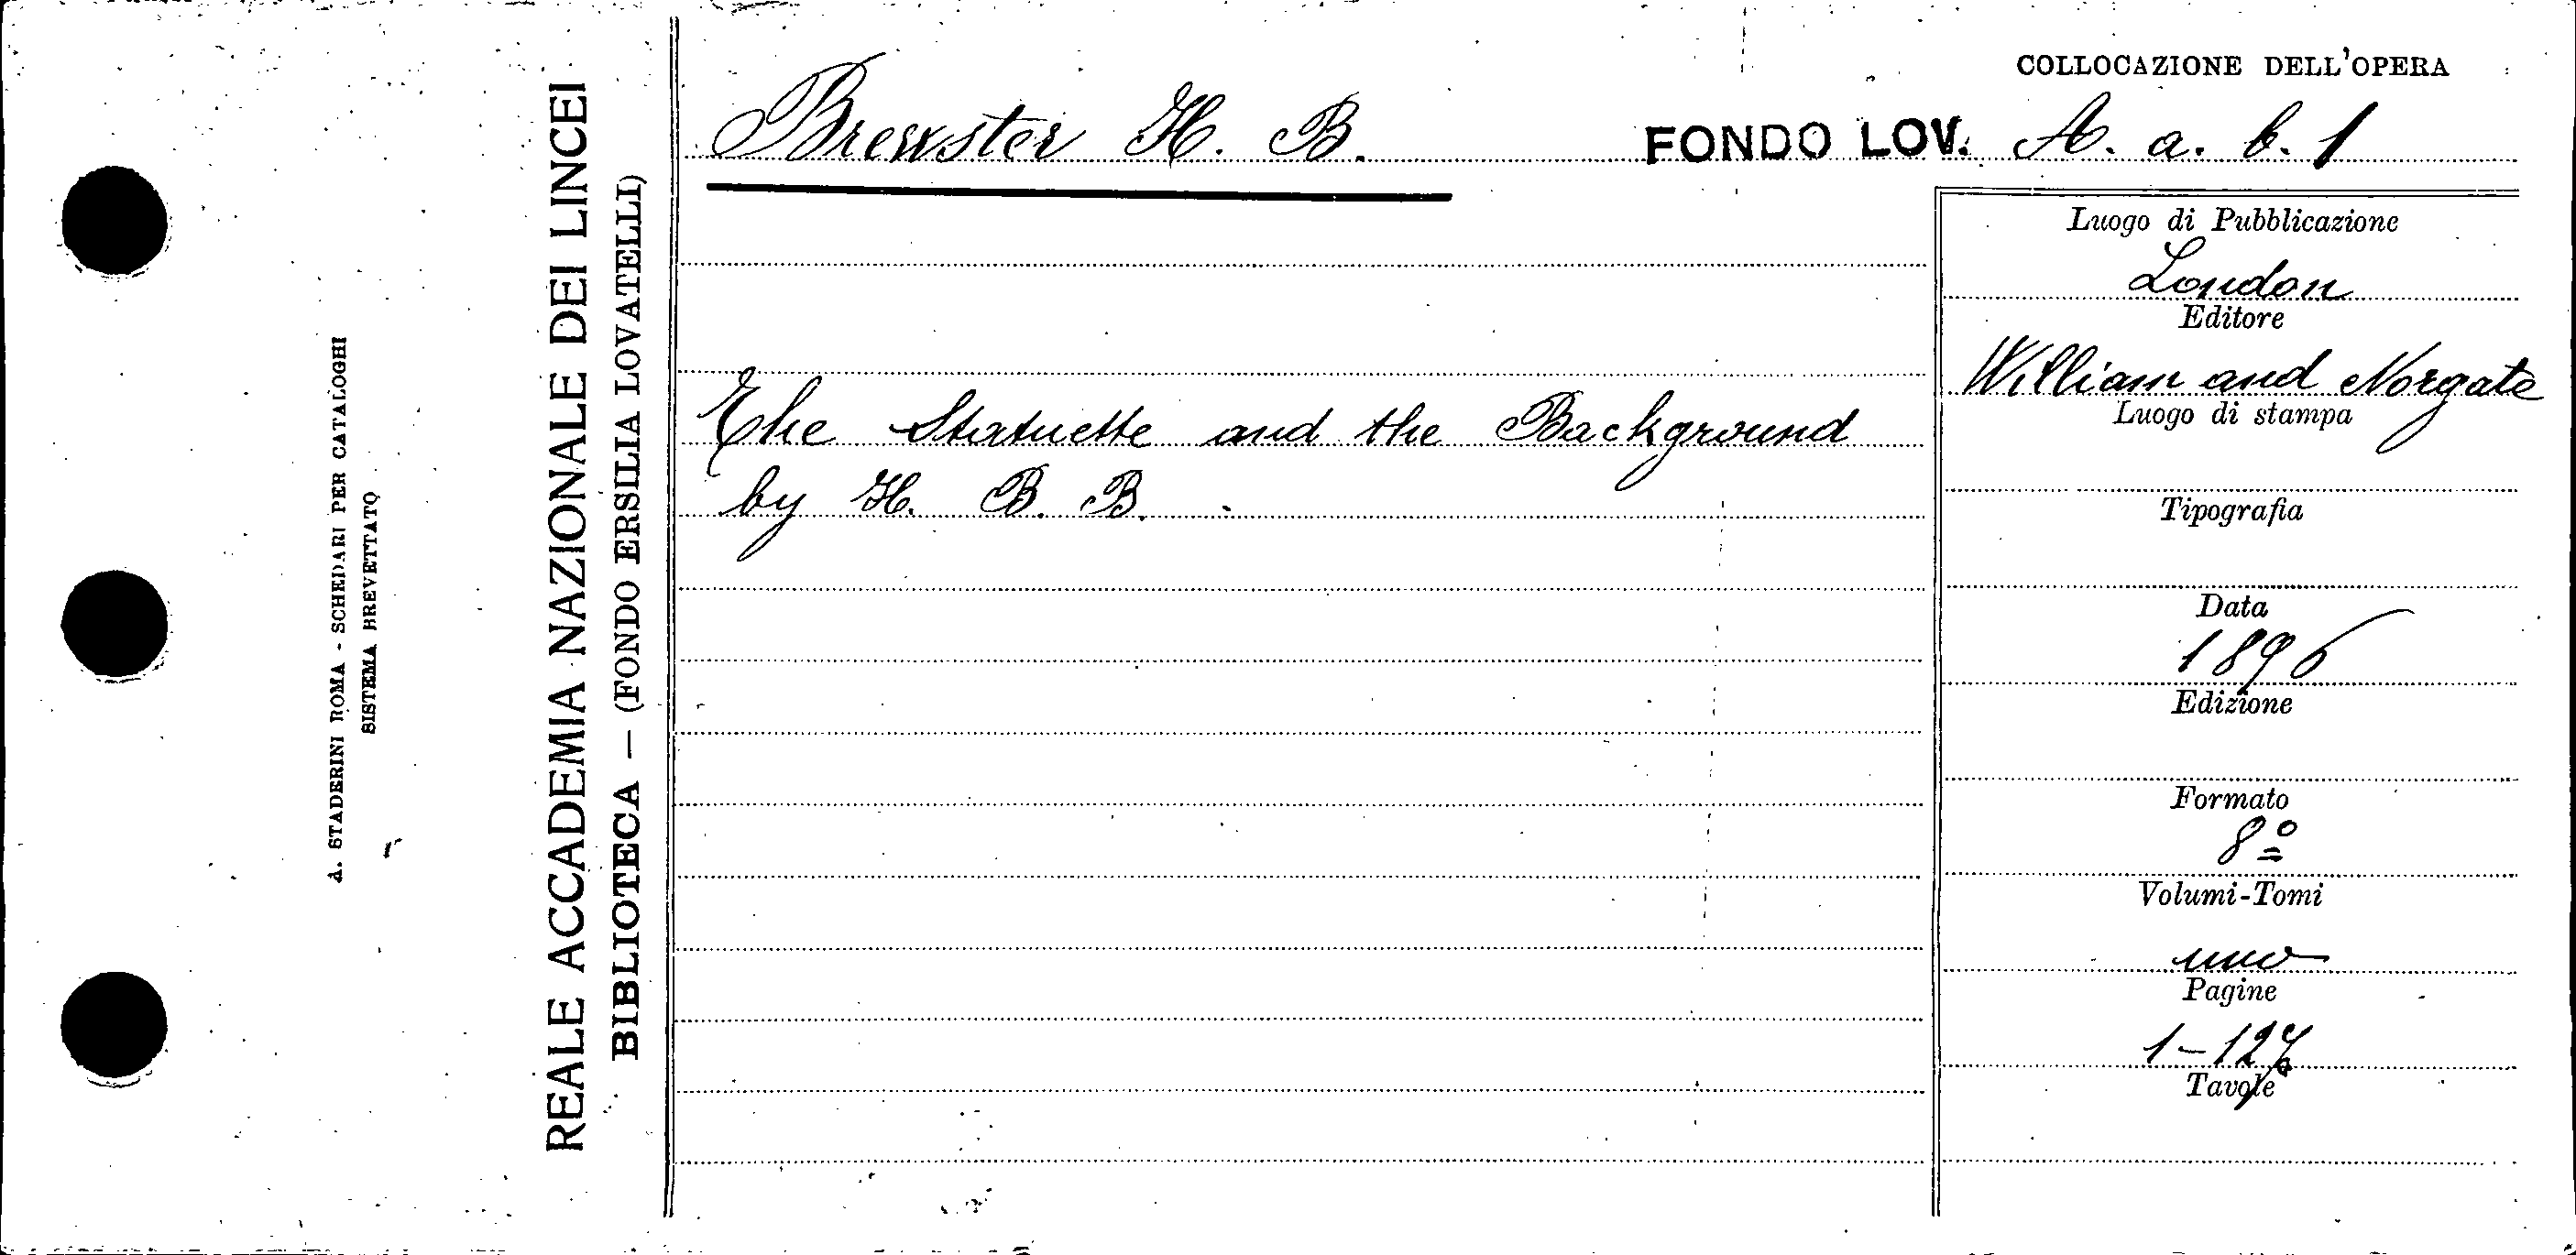 A. STADERINI ROMA - SCHEDARI PER CATALOGHI
SISTEMA BREVETTATO
REALE ACCADEMIA NAZIONALE DEI LINCEI
BIBLIOTECA — (FONDO ERSILIA LOVATELLI)
Brewster H. B.
The Statuette and the Background
by H. B. B.
COLLOCAZIONE DELL'OPERA
FONDO LOV. A. a. b. 1
Luogo di Pubblicazione
London
Editore
William and Norgate
Luogo di stampa
Tipografia
Data
1896
Edizione
Formato
8º
Volumi-Tomi
uno
Pagine
1-127
Tavole